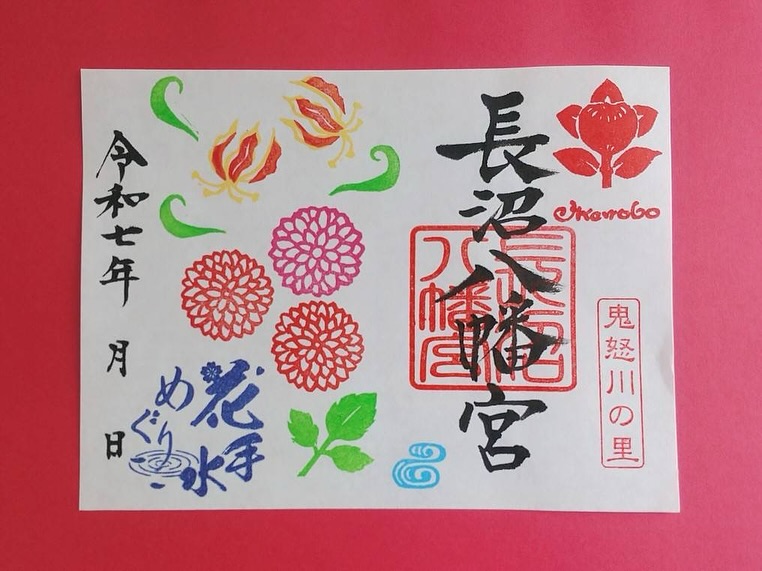 Ikenobo
鬼怒川の里
長沼八幡宮
長沼
八幡宮
花手水
めぐり
令和七年 月 日